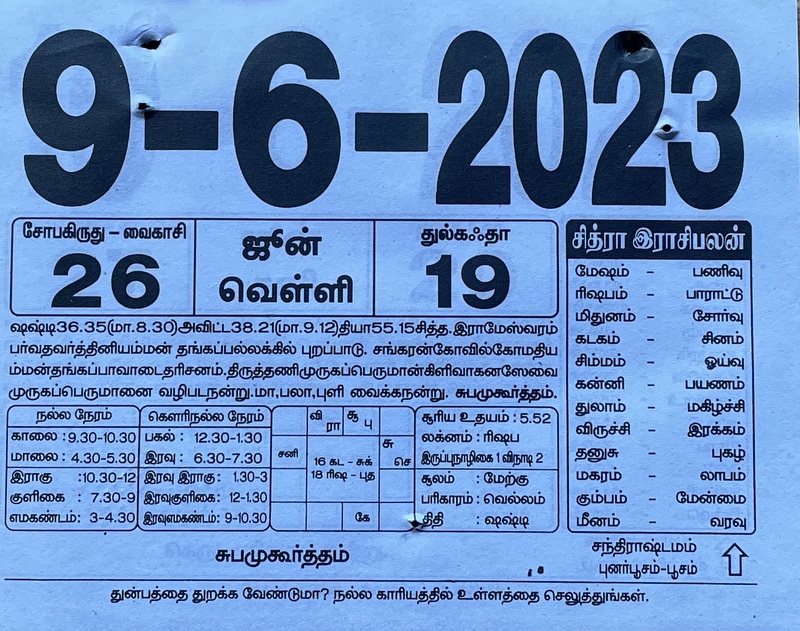 9-6-2023
சோபகிருது – வைகாசி
26
ஜூன்
வெள்ளி
துல்கஃதா
19
ஷஷ்டி36.35(மா.8.30)அவிட்ட38.21(மா.9.12)தியா55.15சித்த.இராமேஸ்வரம்
பர்வதவர்த்தினியம்மன் தங்கப்பல்லக்கில் புறப்பாடு. சங்கரன்கோவில்கோமதிய
ம்மன்தங்கப்பாவாடைதரிசனம்.திருத்தணிமுருகப்பெருமான்கிளிவாகனஸேவை
முருகப்பெருமானை வழிபடநன்று.மா,பலா,புளி வைக்கநன்று. சுபமுகூர்த்தம்.
நல்ல நேரம்
காலை : 9.30-10.30
மாலை : 4.30-5.30
இராகு :10.30-12
குளிகை : 7.30-9
எமகண்டம்: 3-4.30
கௌரிநல்ல நேரம்
பகல் : 12.30-1.30
இரவு : 6.30-7.30
இரவு இராகு : 1.30-3
இரவுகுளிகை : 12-1.30
இரவுஎமகண்டம்: 9-10.30
வி சூ
ரா பு
சு
சனி செ
16 கட - சுக்
18 ரிஷ - புத
கே
சூரிய உதயம் : 5.52
லக்னம் : ரிஷப
இருப்புநாழிகை 1 விநாடி 2
சூலம் : மேற்கு
பரிகாரம் : வெல்லம்
திதி : ஷஷ்டி
சித்ரா இராசிபலன்
மேஷம் - பணிவு
ரிஷபம் - பாராட்டு
மிதுனம் - சோர்வு
கடகம் - சினம்
சிம்மம் - ஓய்வு
கன்னி - பயணம்
துலாம் - மகிழ்ச்சி
விருச்சி - இரக்கம்
தனுசு - புகழ்
மகரம் - லாபம்
கும்பம் - மேன்மை
மீனம் - வரவு
சுபமுகூர்த்தம்
சந்திராஷ்டமம்
புனர்பூசம்-பூசம்
துன்பத்தை துறக்க வேண்டுமா? நல்ல காரியத்தில் உள்ளத்தை செலுத்துங்கள்.